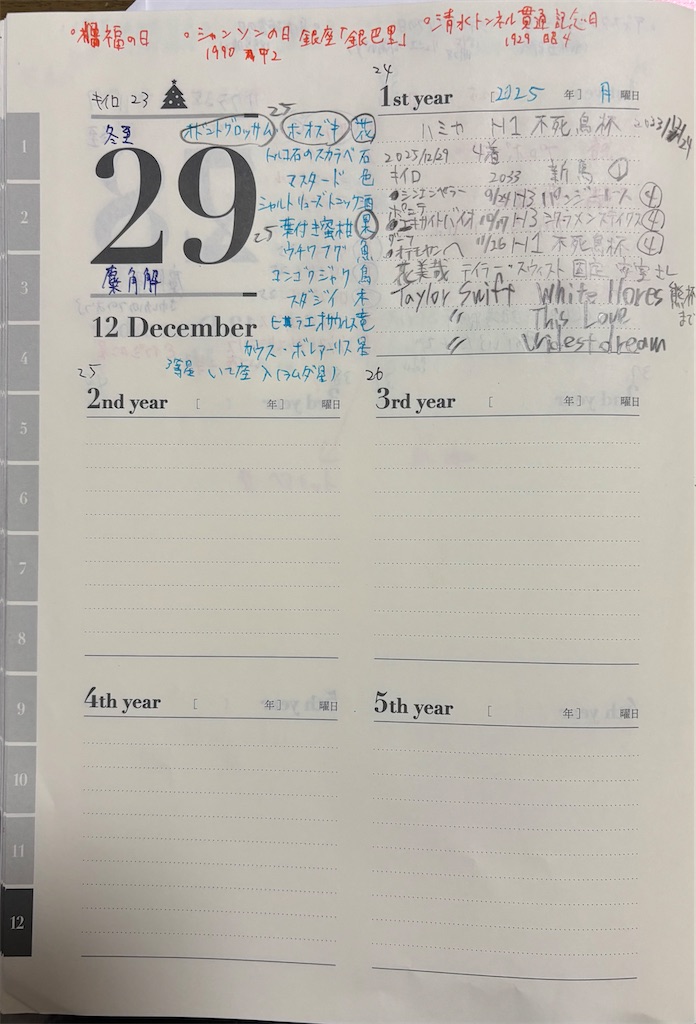 ・福の日
・シャンソンの日 銀座「銀巴里」
1990
・清水トンネル貫通記念日
1929 昭4
キイロ 23
冬至
29
麋角解
12 December
25
オドントグロッサム ホオズキ 花
トルコ石のスカラベ 石
マスタード 色
シャルトリューズトニック 酒
25 葉付き蜜柑 果
ウチワフグ 魚
コンゴクジャク 鳥
スダジイ 木
ヒメラエオサウルス 竜
カウス・ボレアーリス 星
いて座 入(ラムダ星)
24
1st year [2025 年] 月 曜日
ハミカ H1 不死鳥杯
2025/12/29 4着
キイロ 2033 新馬 ①
9/24 H3 ④
エキサイトバイオ 10/19 H3 ④
11/26 H1 不死鳥杯 ④
花美哉 テイラースウィスト 固定
Taylor Swift White Hores
〃 This Love まで
〃 Wildest dream
25
2nd year [ 年] 曜日
26
3rd year [ 年] 曜日
4th year [ 年] 曜日
5th year [ 年] 曜日
1
2
3
4
5
6
7
8
9
10
11
12